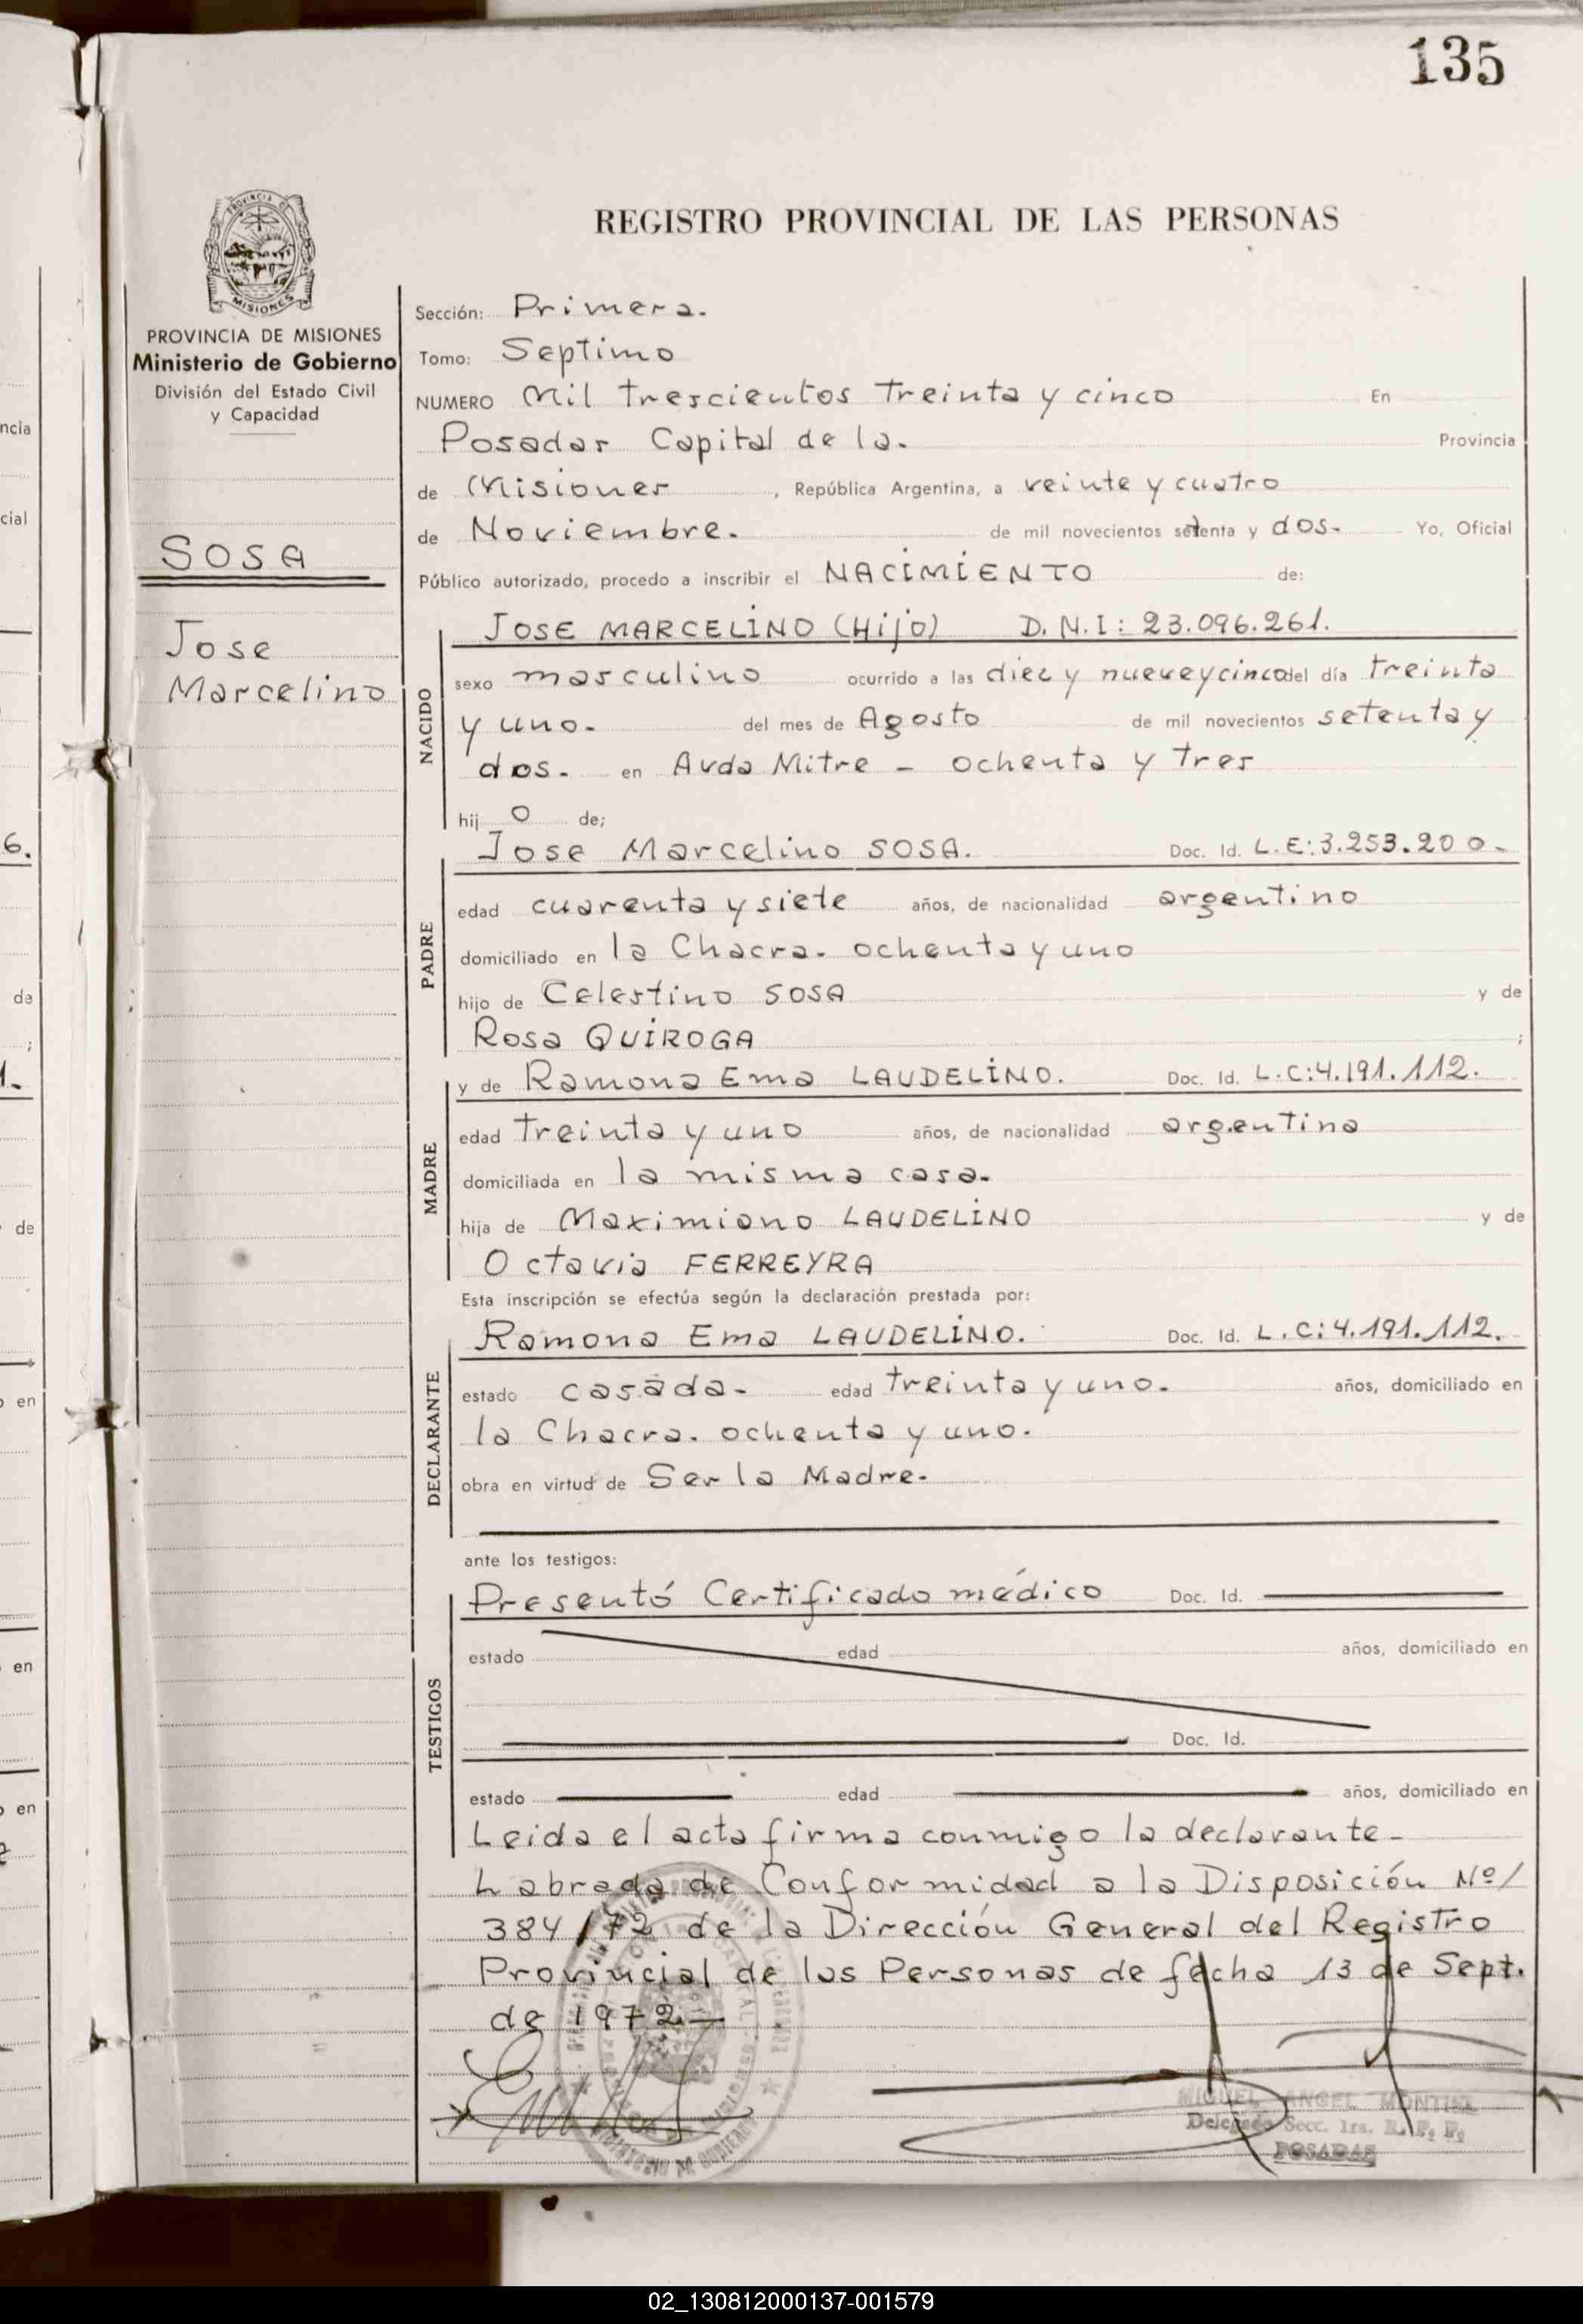 135
PROVINCIA DE
MISIONES
PROVINCIA DE MISIONES
Ministerio de Gobierno
División del Estado Civil
y Capacidad
SOSA
Jose
Marcelino
REGISTRO PROVINCIAL DE LAS PERSONAS
Sección: Primera.
Tomo: Septimo
NUMERO Mil trescientos treinta y cinco En
Posadas Capital de la. Provincia
de Misiones , República Argentina, a veinte y cuatro
de Noviembre. de mil novecientos setenta y dos. Yo, Oficial
Público autorizado, procedo a inscribir el NACIMIENTO de:
NACIDO
JOSE MARCELINO (Hijo) D.N.I: 23.096.261.
sexo masculino ocurrido a las diez y nueve y cinco del día treinta
y uno. del mes de Agosto de mil novecientos setenta y
dos. en Avda Mitre - ochenta y tres
hij o de;
PADRE
Jose Marcelino SOSA. Doc. Id. L.E:3.253.200.
edad cuarenta y siete años, de nacionalidad argentino
domiciliado en la Chacra. ochenta y uno
hijo de Celestino SOSA y de
Rosa QUIROGA ;
MADRE
y de Ramona Ema LAUDELINO. Doc. Id. L.C:4.191.112.
edad treinta y uno años, de nacionalidad argentina
domiciliada en la misma casa.
hija de Maximiano LAUDELINO y de
Octavia FERREYRA
Esta inscripción se efectúa según la declaración prestada por:
DECLARANTE
Ramona Ema LAUDELINO. Doc. Id. L.C:4.191.112.
estado casada. edad treinta y uno. años, domiciliado en
la Chacra. ochenta y uno.
obra en virtud de Ser la Madre.
ante los testigos:
TESTIGOS
Presentó Certificado médico Doc. Id.
estado edad años, domiciliado en
Doc. Id.
estado edad años, domiciliado en
Leida el acta firma conmigo la declarante.
Labrada de Conformidad a la Disposición Nº/
384/72 de la Dirección General del Registro
Provincial de las Personas de fecha 13 de Sept.
de 1972
MIGUEL ANGEL
Delegado Secc. 1ra. R. P. P.
POSADAS
02_130812000137-001579